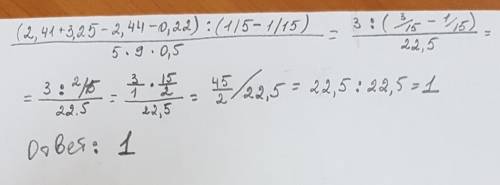 (2,41+3,25-2,44-0,22) : (1/5-1/15) / 5 · 9 · 0,5 = 3 : (3/15 - 1/15) / 22,5 =
= 3 : 2/15 / 22.5 = 3/1 · 15/2 / 22,5 = 45/2 / 22,5 = 22,5 : 22,5 = 1
Ответ: 1